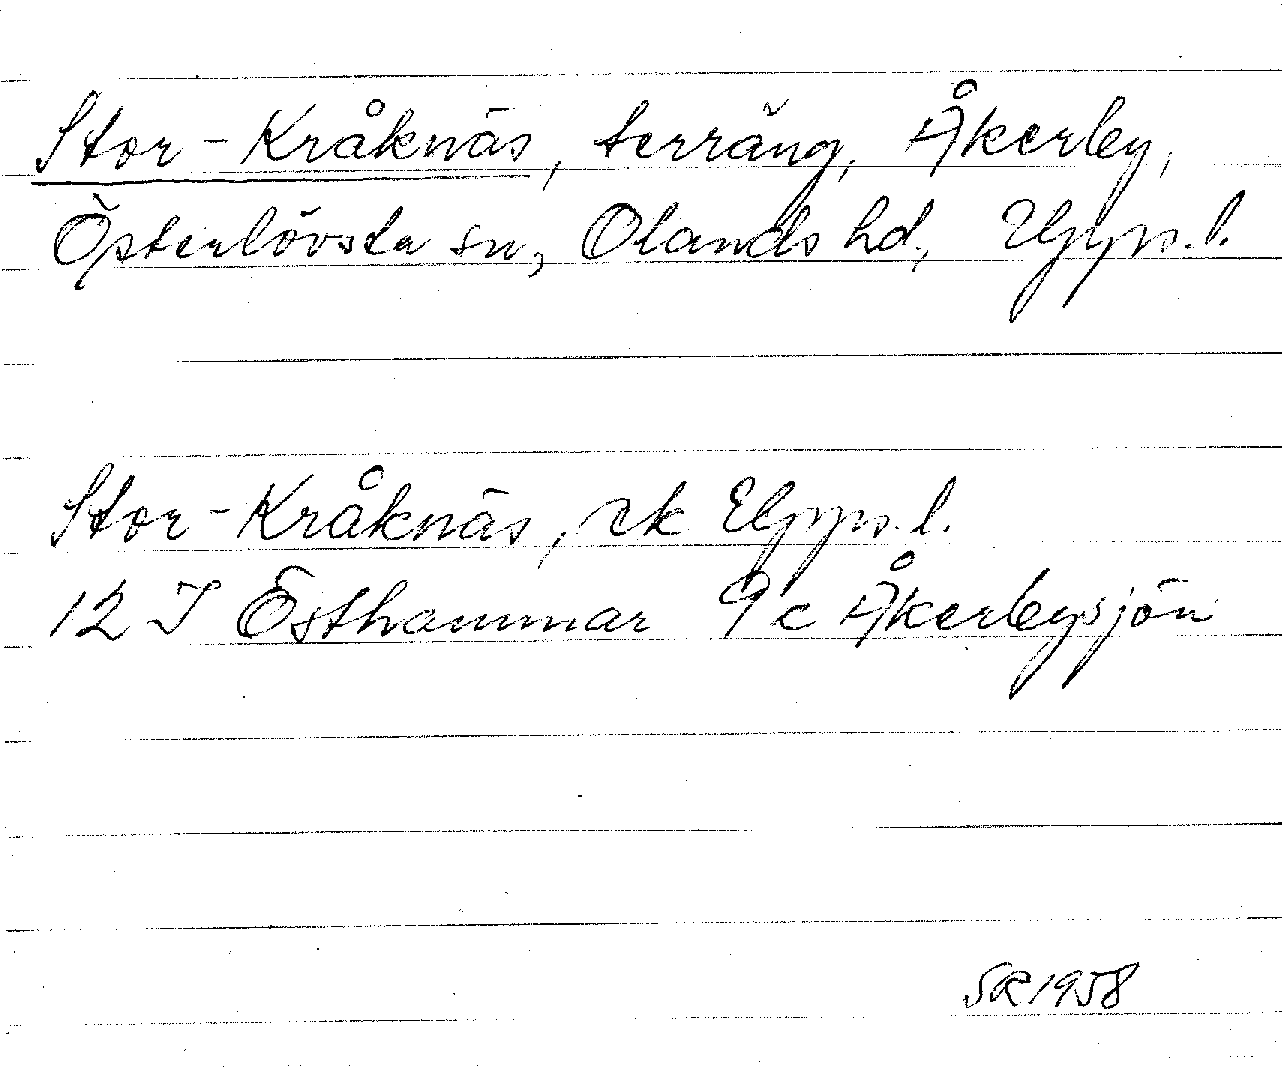 Stor-Kråknäs, terräng, Åkerby,
Österlövsta sn, Olands hd, Upps.l.
Stor-Kråknäs, ek Upps.l.
12 I Östhammar 9c Åkerbysjön
SR 1958